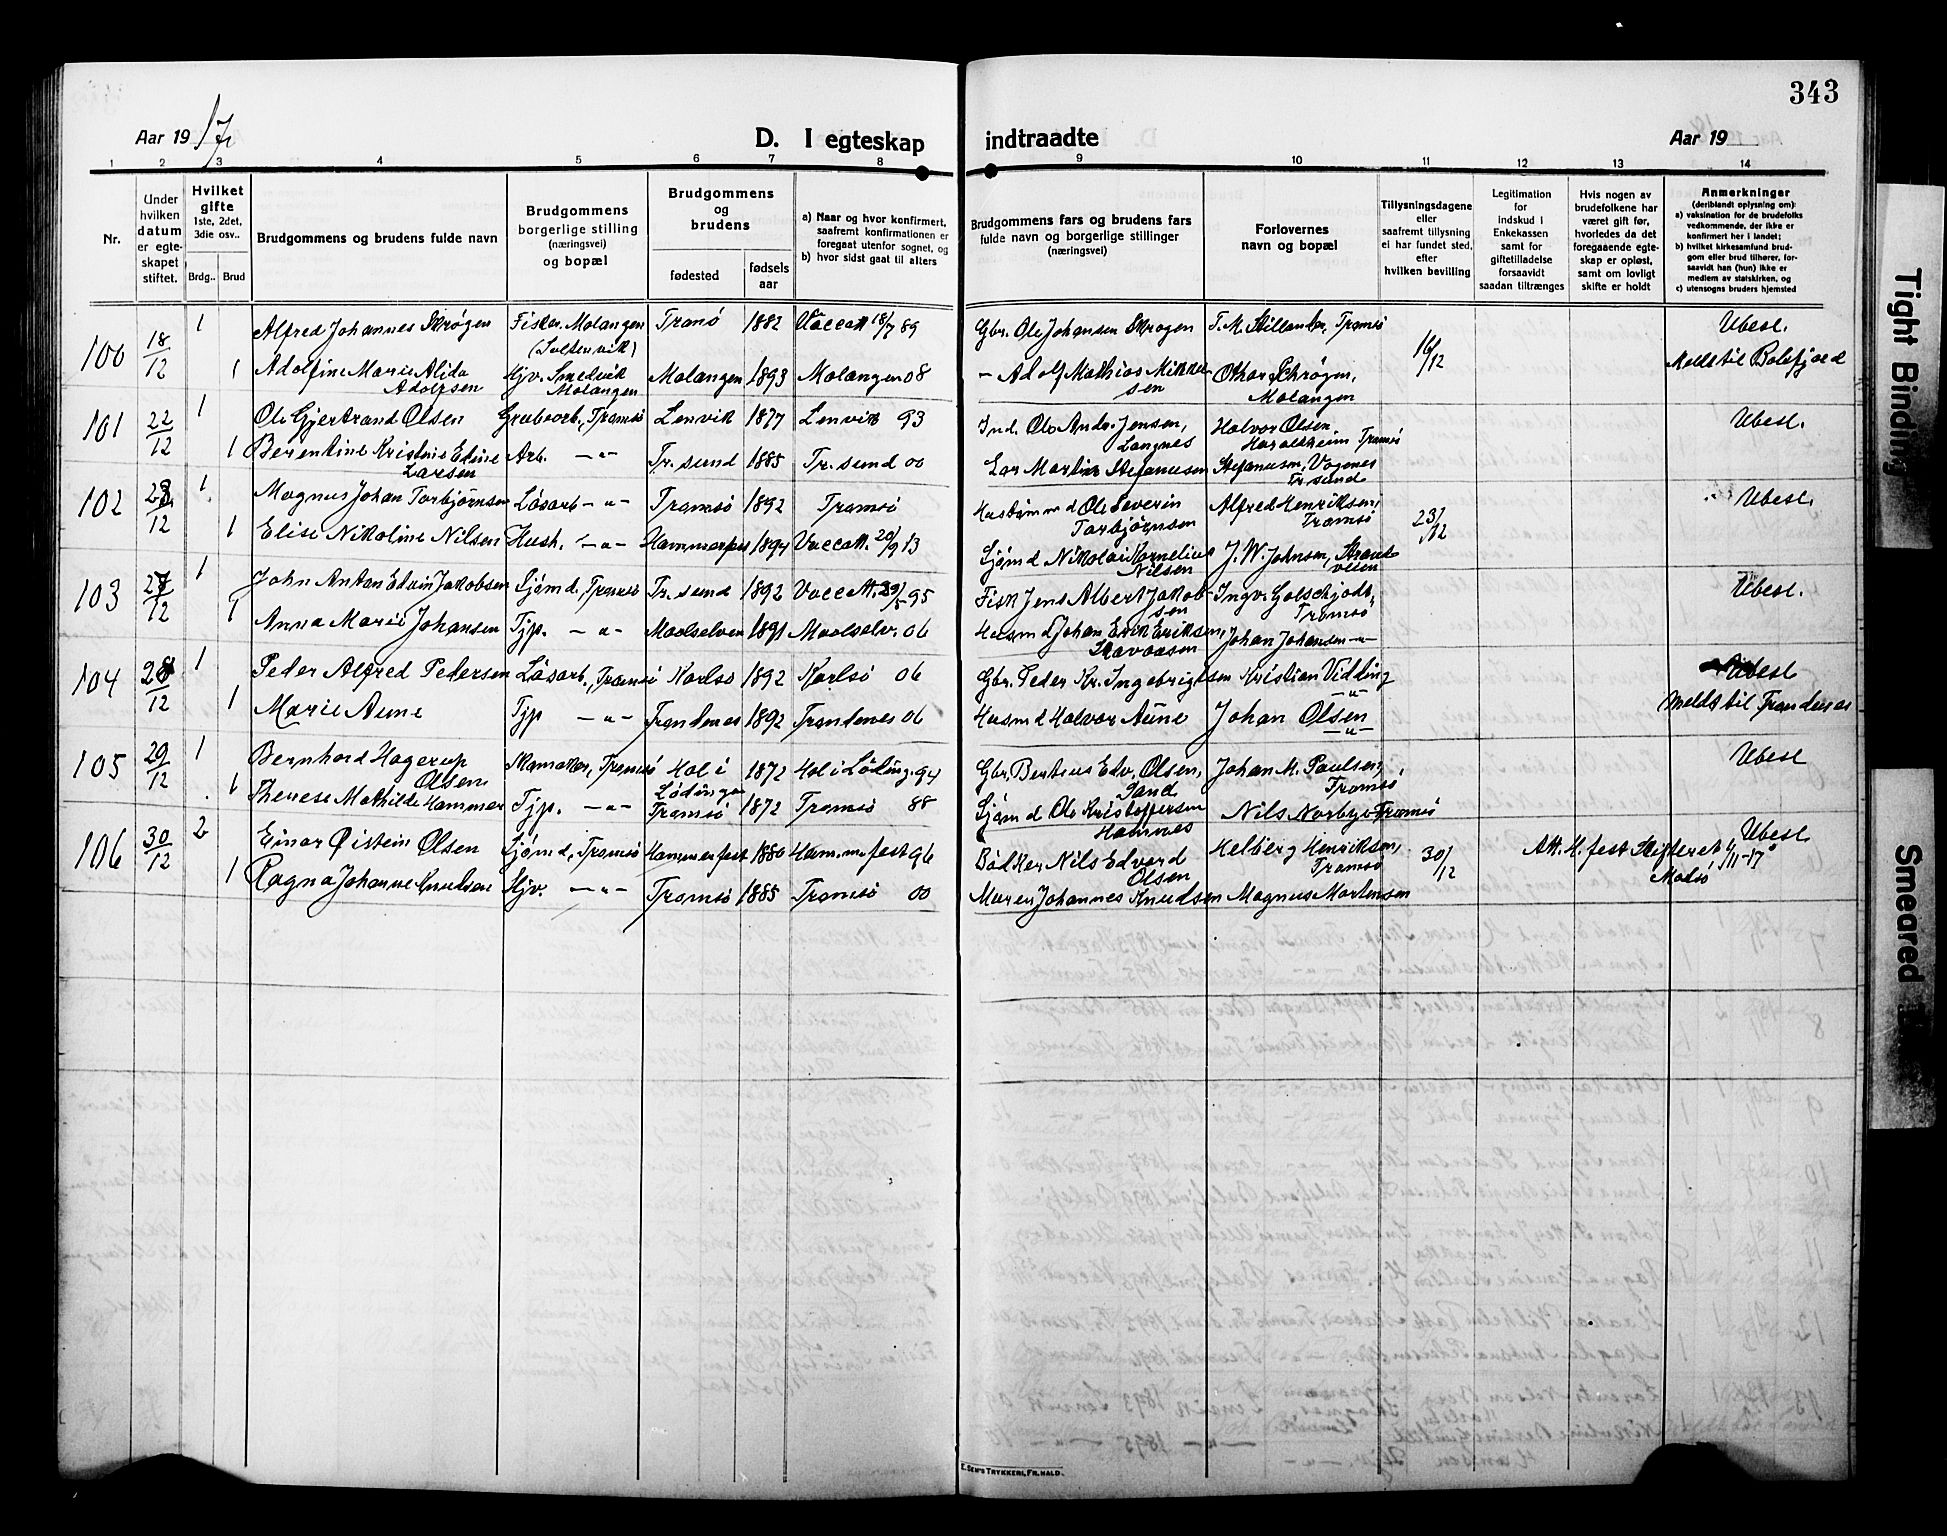 343
Aar 19 17
D. I egteskap indtraadte
Aar 19
1 2 3 4 5 6 7 8 9 10 11 12 13 14
Nr.
Under hvilken datum er egteskapet stiftet.
Hvilket gifte 1ste, 2det, 3die osv..
Brdg.. Brud
Brudgommens og brudens fulde navn
Brudgommens borgerlige stilling (næringsvei) og bopæl
Brudgommens og brudens
fødested
fødsels aar
a) Naar og hvor konfirmert, saafremt konfirmationen er foregaat utenfor sognet, og
b) hvor sidst gaat til alters
Brudgommens fars og brudens fars fulde navn og borgerlige stillinger (næringsvei)
Forlovernes navn og bopæl
Tillysningsdagene eller saafremt tillysning ei har fundet sted, efter hvilken bevilling
Legitimation for indskud i Enkekassen samt for giftetilladelse forsaavidt saadan tiltrænges
Hvis nogen av brudefolkene har været gift før, hvorledes da det foregaaende egteskap er opløst, samt om lovligt skifte er holdt
Anmerkninger (deriblandt oplysning om):
a) vaksination for de brudefolks vedkommende, der ikke er konfirmert her i landet;
b) hvilket kirkesamfund brudgom eller brud tilhører, forsaavidt han (hun) ikke er medlem av statskirken, og
c) utensogns bruders hjemsted
100 18/12 1 Alfred Johannes Skrøgen Fisker, Malangen Tranö 1882 Vaccatt 18/7 89 Gbr. Ole Johansen Skrogen Tromsö 16/12 Ubesl.
1 Adolfine Marie Alida Adolfsen Hjv. Smedvik Malangen Malangen 1893 Malangen 08 – Adolf Mathias Mikkelsen Othar Schrøgen, Malangen Meldt til Balsfjord
101 22/12 1 Ole Gjertrand Olsen Grubearb., Tromsö Lenvik 1877 Lenvik 93 Ind. Ole Andr. Jensen, Langnes Halvor Olsen Haraldheim Tromsö Ubesl.
1 Berentine Kristine Edine Larsen Arb. –"– Tr.sund 1885 Tr.sund 00 Lar Martin Stefanusen Stefanusen, Vagnes Tr.sund
102 12 1 Magnus Johan Torbjørnsen Lösarb –"– Tromsö 1892 Tromsö Husmd Ole Severin Torbjørnsen Alfred Henriksen, Tromsö 23/12 Ubesl.
1 Elise Nikoline Nilsen Hush. –"– Hammerfest 1894 Vaccatt. 20/9 13 Sjömd Nikolai Kornelius Nilsen J. W. Johnsen, Strandveien
103 27/12 1 John Anton Edvin Jakobsen Sjömd, Tromsö Tr.sund 1892 Vaccatt. 95 Fisk Jens Albert Jakobsen Tromsö Ubesl.
1 Anna Marie Johansen Tjp. –"– Maalselven 1891 Maalselv. 06 Husmd Johan Erik Eriksen, Johan Johansen –"–
104 28/12 1 Peder Alfred Pedersen Lösarb., Tromsö Karlsö 1892 Karlsö 06 Gbr. Peder Kr. Ingebrigtsen Kristian Vidding –"– Ubesl
1 Marie Aune Tjp –"– Trondenes 1892 Trondenes 06 Husmd Halvor Aune Johan Olsen –"– Meldt til Trondenes
105 29/12 1 Bernhard Hagerup Olsen Skomaker, Tromsö Hol i Lødingen 1872 Hol i Löding. 94 Gbr. Bertius Edv. Olsen, Sand Johan M. Paulsen, Tromsö Ubesl
1 Therese Mathilde Hammer Tjp. –"– Tromsö 1872 Tromsö 88 Sjömd Ole Kristoffersen Hamnes Nils Norbye Tromsö
106 30/12 2 Einar Øistein Olsen Sjömd, Tromsö Hammerfest 1880 Hammerfest 96 Bödker Nils Edvard Olsen Helberg Henriksen, Tromsö 30/12 Att. H.fest Skifteret 11–17 Ubesl
1 Ragna Johanne Knudsen Hjv. –"– Tromsö 1885 Tromsö 00 Murer Johannes Knudsen Magnus Mortensen
E. SEM'S TRYKKERI, FR.HALD.
Tight Binding
Smeared